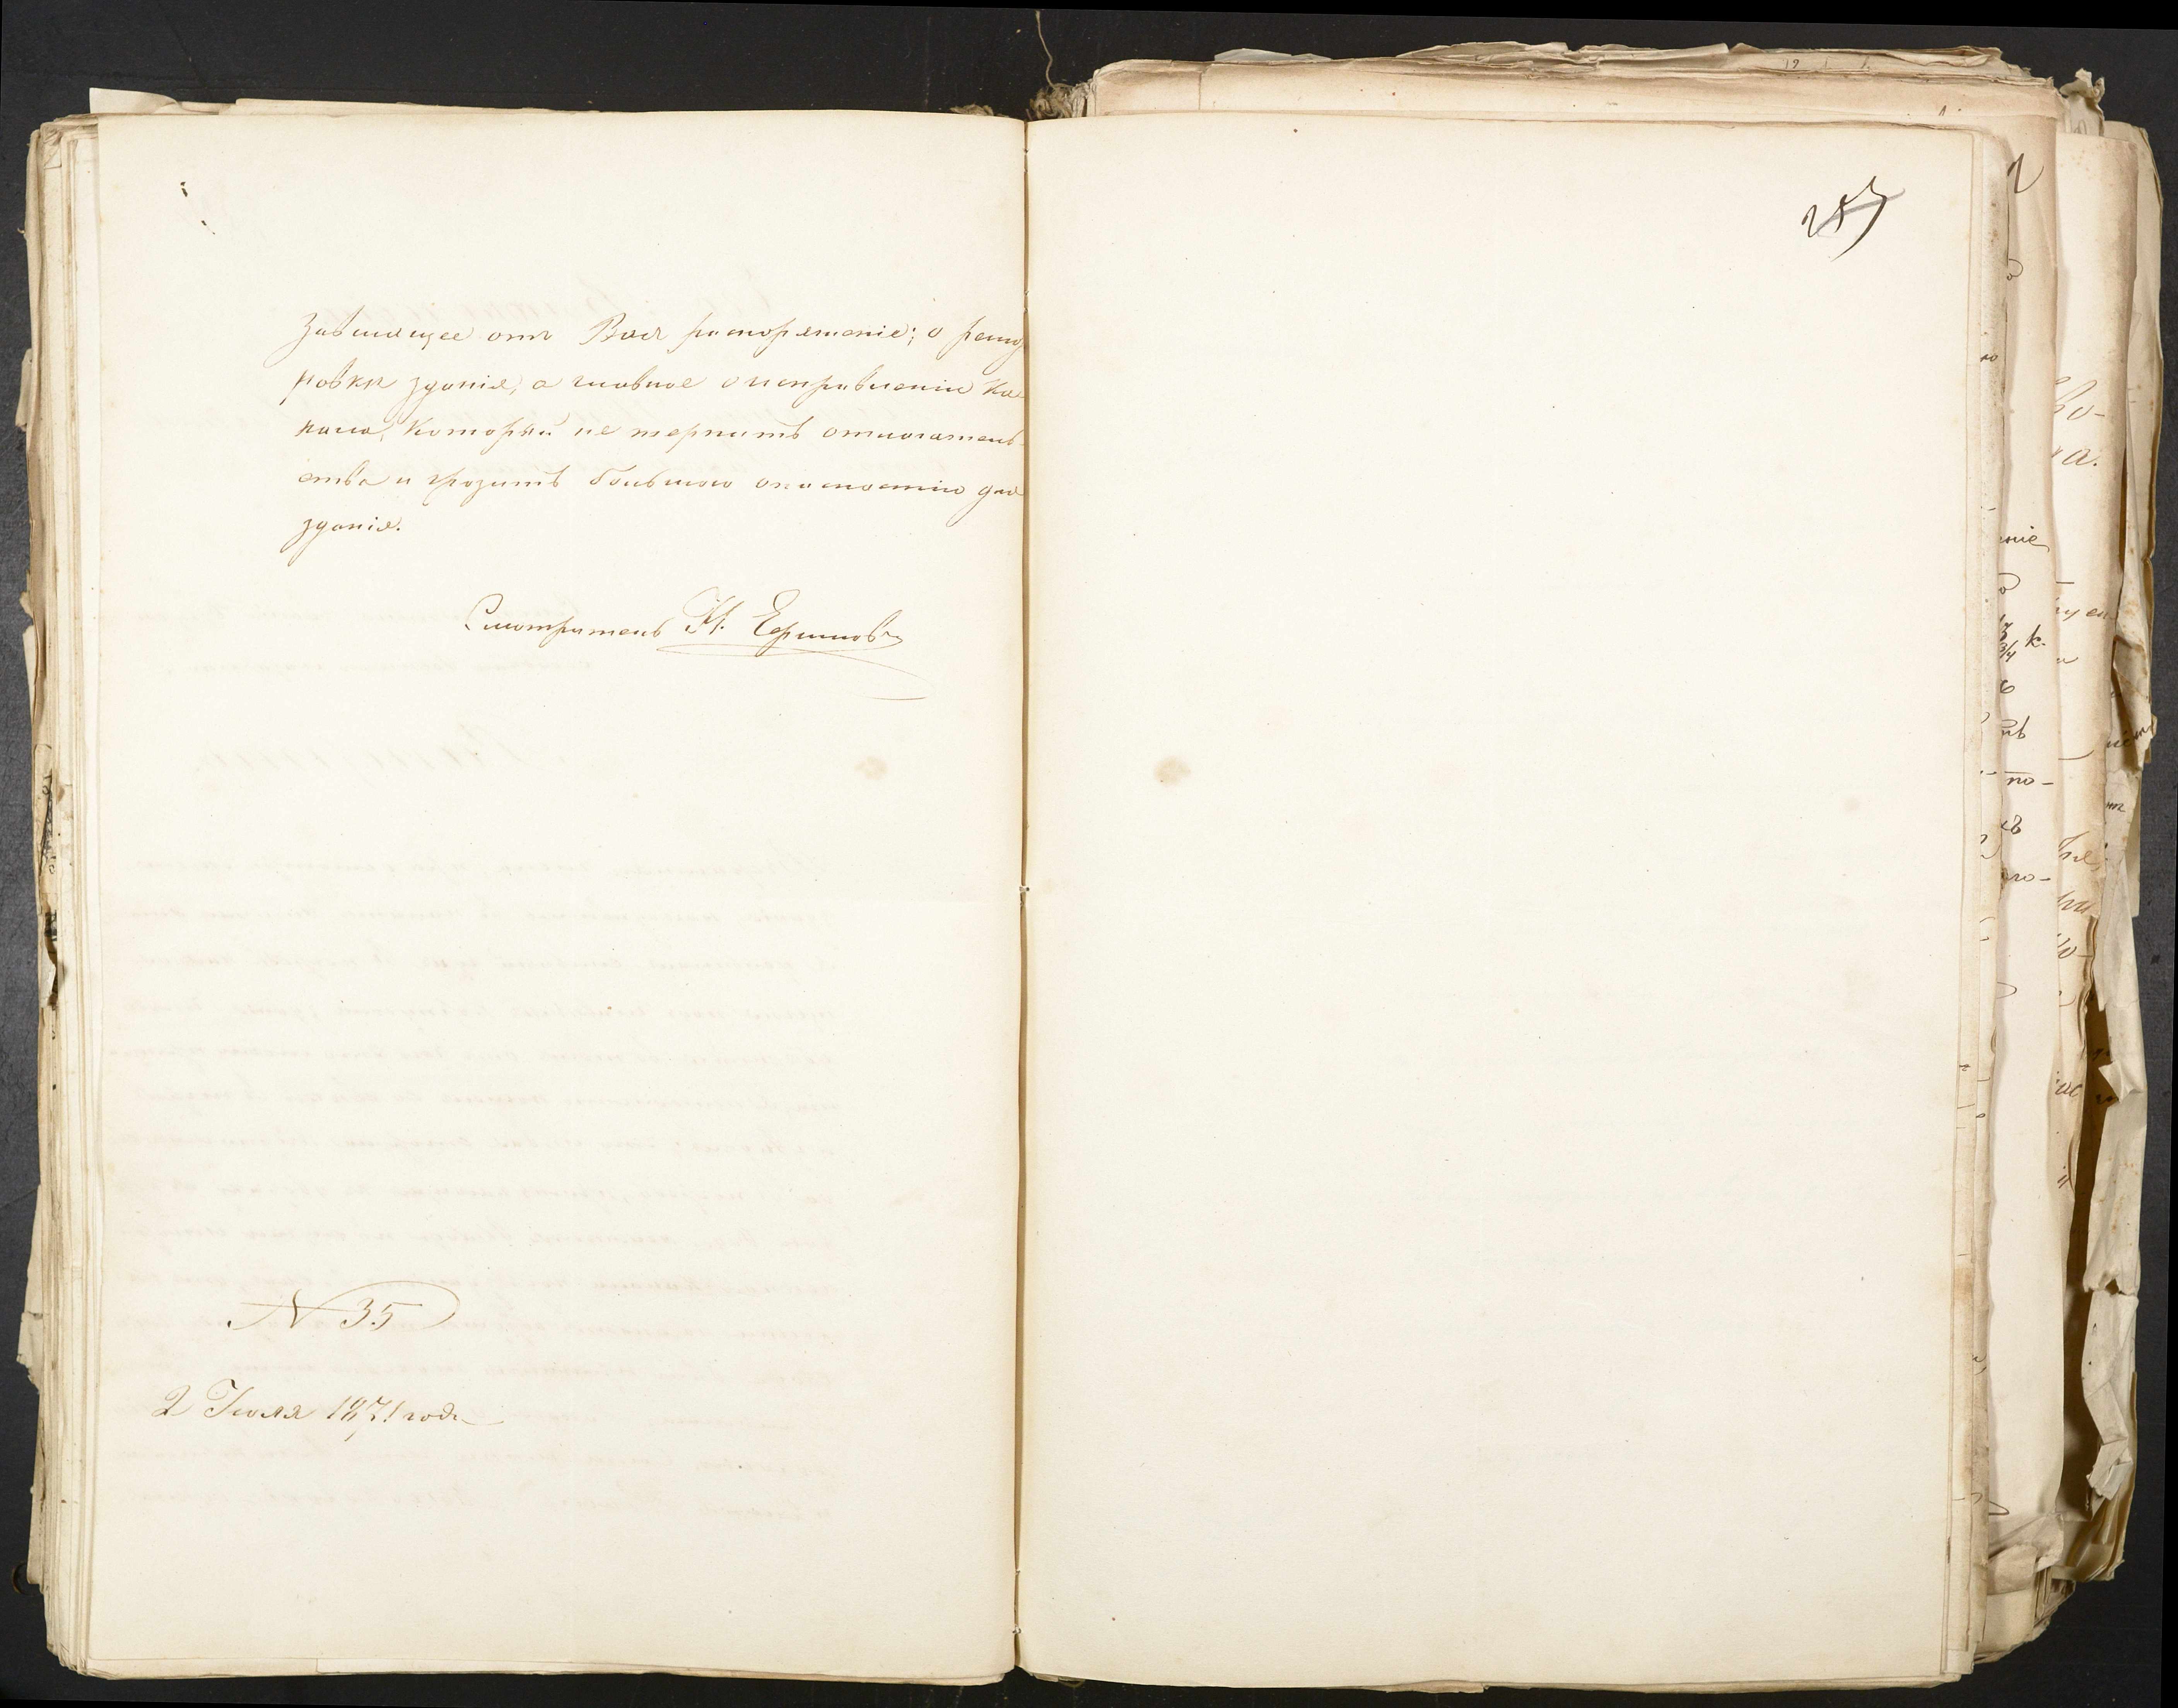 зависящее отъ Васъ распоряженіе; о рему
ровки зданія, а главное о исправленіи ка
нала, который не терпитъ отлогатель-
ства и грозитъ большою опасностію для
зданія.
Смотритель Н. Ефимовъ
N 35
2 Іюля 1871 года